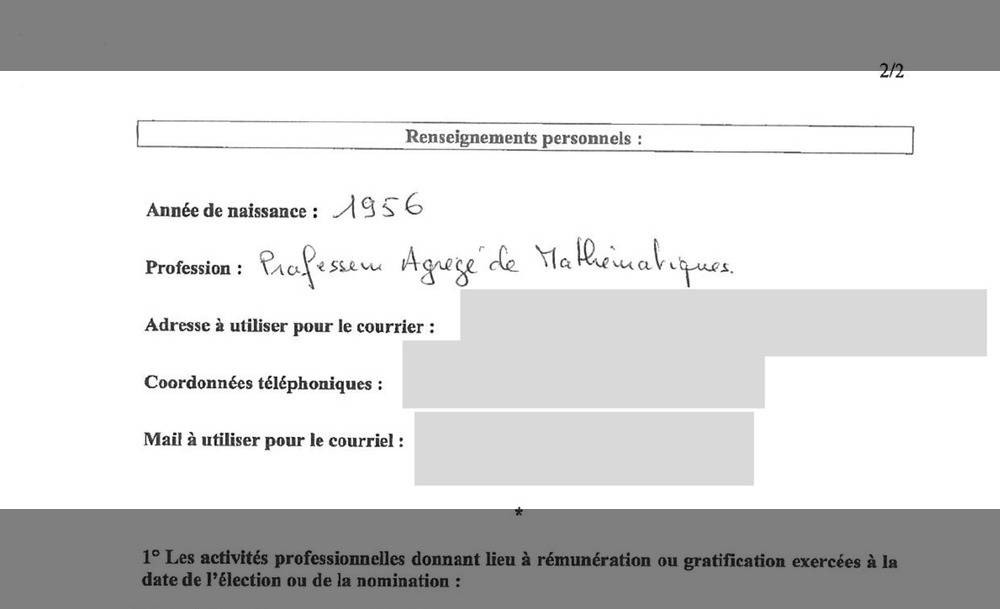 2/2
Renseignements personnels :
Année de naissance : 1956
Profession : Professeur Agrégé de Mathématiques.
Adresse à utiliser pour le courrier :
Coordonnées téléphoniques :
Mail à utiliser pour le courriel :
*
1° Les activités professionnelles donnant lieu à rémunération ou gratification exercées à la
date de l'élection ou de la nomination :